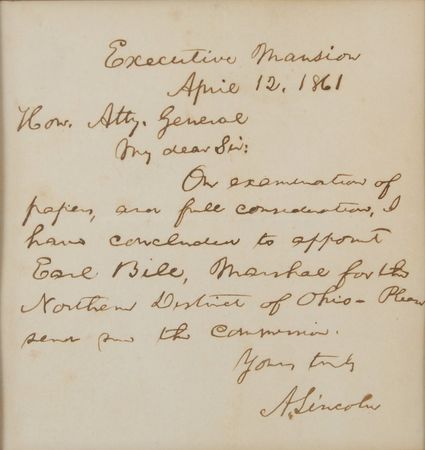 Executive Mansion
April 12, 1861
Hon. Atty. General
My dear Sir:
On examination of
papers, and full consideration, I
have concluded to appoint
Earl Bill, Marshal for the
Northern District of Ohio - Please
send me the commission.
Yours truly
A. Lincoln